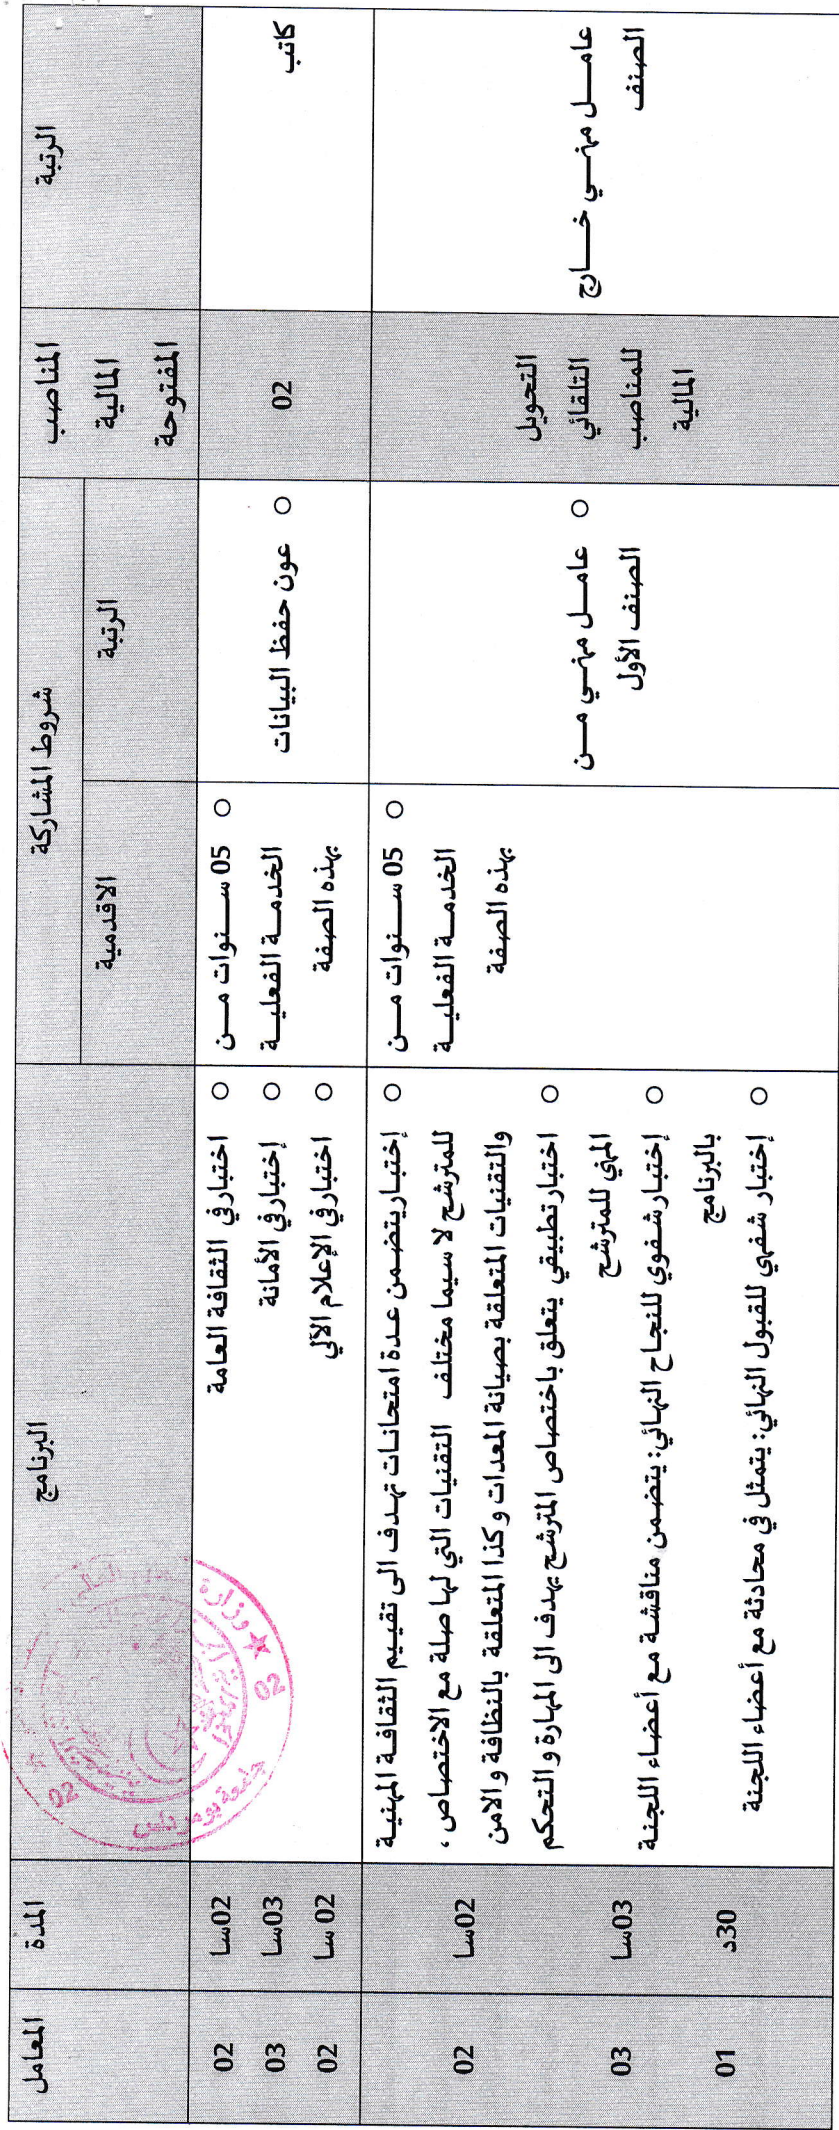 الرتبة
المناصب
المالية
المفتوحة
شروط المشاركة
الرتبة
الاقدمية
البرنامج
المدة
المعامل
كاتب
02
○ عون حفظ البيانات
○ 05 سنوات من
الخدمة الفعلية
بهذه الصفة
○ اختبار في الثقافة العامة
○ إختبار في الأمانة
○ اختبار في الإعلام الآلي
02سا
03سا
02سا
02
03
02
عامل مهني خارج
الصنف
التحويل
التلقائي
للمناصب
المالية
○ عامل مهني من
الصنف الأول
○ 05 سنوات من
الخدمة الفعلية
بهذه الصفة
○ إختبار يتضمن عدة امتحانات تهدف الى تقييم الثقافة المهنية
للمترشح لا سيما مختلف التقنيات التي لها صلة مع الاختصاص ،
والتقنيات المتعلقة بصيانة المعدات وكذا المتعلقة بالنظافة والامن
○ اختبار تطبيقي يتعلق باختصاص المترشح يهدف الى المهارة والتحكم
المهني للمترشح
○ إختبار شفوي للنجاح النهائي: يتضمن مناقشة مع أعضاء اللجنة
بالبرنامج
○ إختبار شفهي للقبول النهائي: يتمثل في محادثة مع أعضاء اللجنة
02سا
03سا
30د
02
03
01
وزارة
02
02
جامعة بومرداس